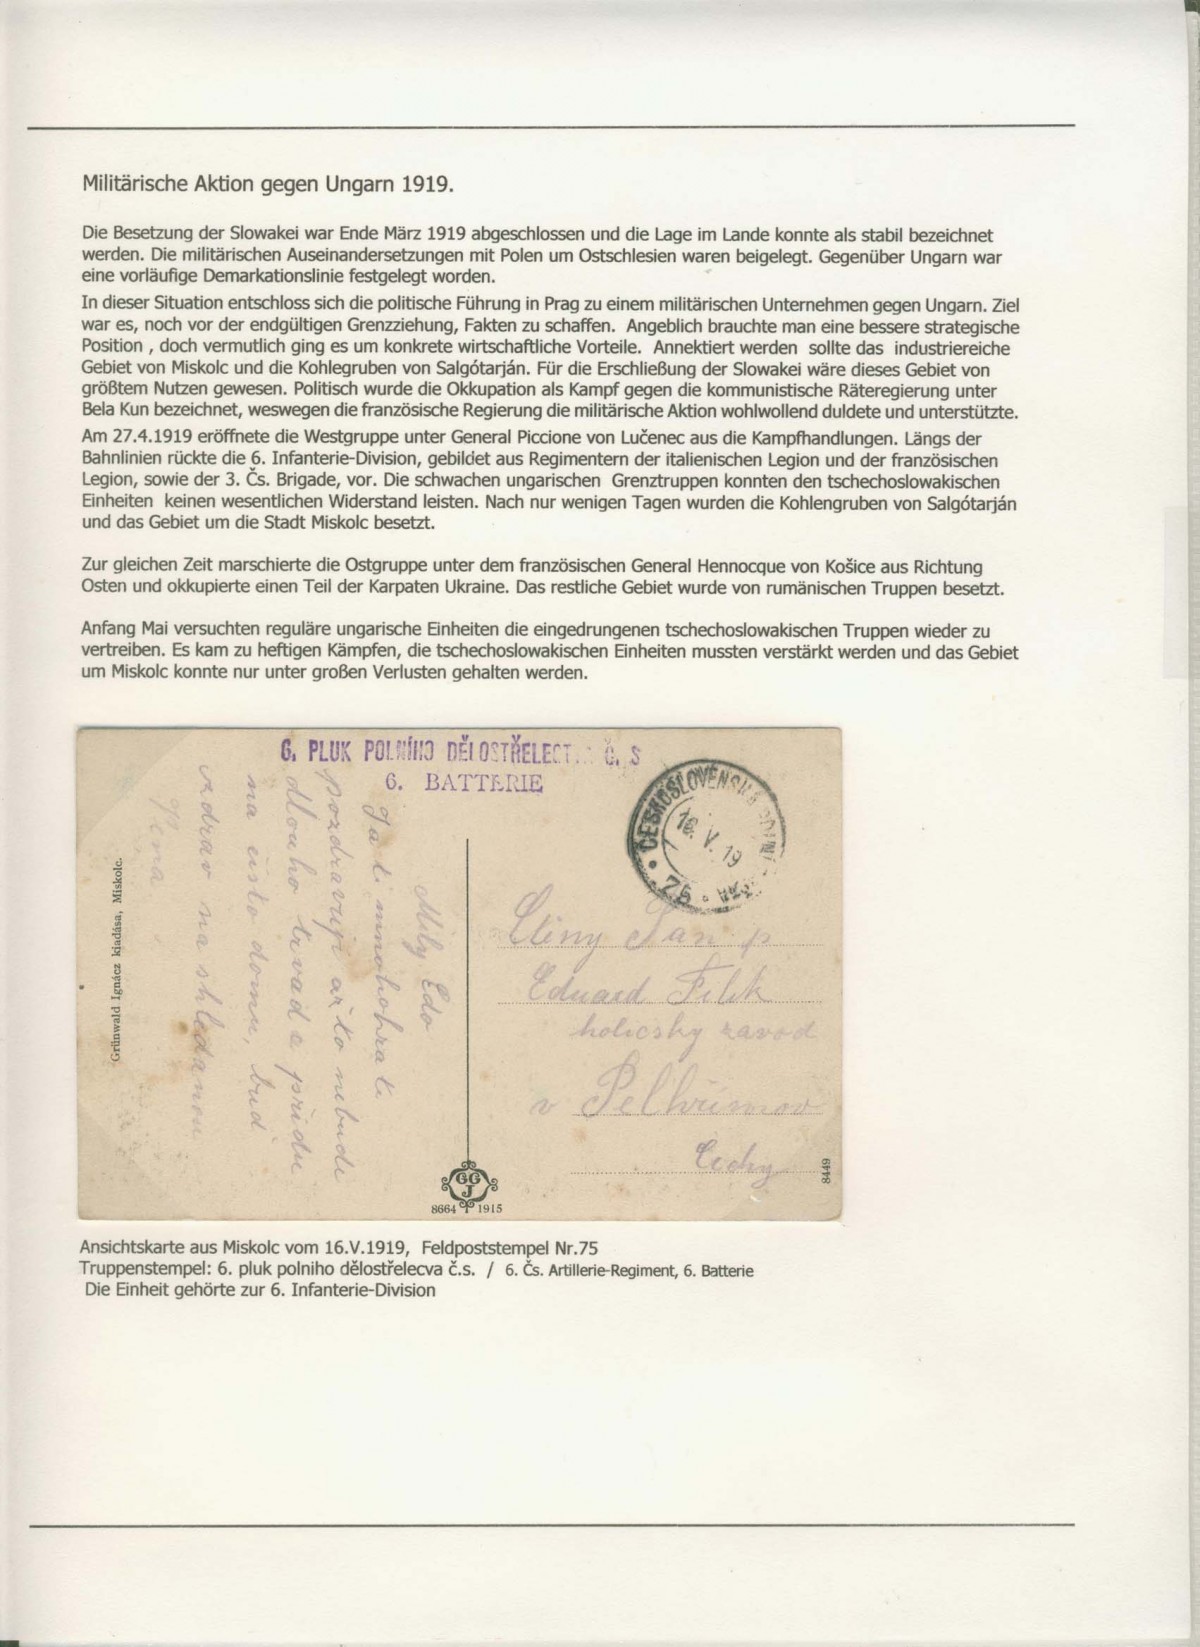 Militärische Aktion gegen Ungarn 1919.
Die Besetzung der Slowakei war Ende März 1919 abgeschlossen und die Lage im Lande konnte als stabil bezeichnet
werden. Die militärischen Auseinandersetzungen mit Polen um Ostschlesien waren beigelegt. Gegenüber Ungarn war
eine vorläufige Demarkationslinie festgelegt worden.
In dieser Situation entschloss sich die politische Führung in Prag zu einem militärischen Unternehmen gegen Ungarn. Ziel
war es, noch vor der endgültigen Grenzziehung, Fakten zu schaffen. Angeblich brauchte man eine bessere strategische
Position , doch vermutlich ging es um konkrete wirtschaftliche Vorteile. Annektiert werden sollte das industriereiche
Gebiet von Miskolc und die Kohlegruben von Salgótarján. Für die Erschließung der Slowakei wäre dieses Gebiet von
größtem Nutzen gewesen. Politisch wurde die Okkupation als Kampf gegen die kommunistische Räteregierung unter
Bela Kun bezeichnet, weswegen die französische Regierung die militärische Aktion wohlwollend duldete und unterstützte.
Am 27.4.1919 eröffnete die Westgruppe unter General Piccione von Lučenec aus die Kampfhandlungen. Längs der
Bahnlinien rückte die 6. Infanterie-Division, gebildet aus Regimentern der italienischen Legion und der französischen
Legion, sowie der 3. Čs. Brigade, vor. Die schwachen ungarischen Grenztruppen konnten den tschechoslowakischen
Einheiten keinen wesentlichen Widerstand leisten. Nach nur wenigen Tagen wurden die Kohlengruben von Salgótarján
und das Gebiet um die Stadt Miskolc besetzt.
Zur gleichen Zeit marschierte die Ostgruppe unter dem französischen General Hennocque von Košice aus Richtung
Osten und okkupierte einen Teil der Karpaten Ukraine. Das restliche Gebiet wurde von rumänischen Truppen besetzt.
Anfang Mai versuchten reguläre ungarische Einheiten die eingedrungenen tschechoslowakischen Truppen wieder zu
vertreiben. Es kam zu heftigen Kämpfen, die tschechoslowakischen Einheiten mussten verstärkt werden und das Gebiet
um Miskolc konnte nur unter großen Verlusten gehalten werden.
6. PLUK POLNÍHO DĚLOSTŘELECT Č. S
6. BATTERIE
ČESKOSLOVENSKÁ
16. V. 19
75
Milý Edo
Ja ti mnohokráte
pozdravuji až to nebude
dlouho trvad a přidu
na čisto domu, buď
zdrav na shledanou
Grünwald Ignácz kiadása, Miskolc.
Ctěny Pan p
Eduard Filk
holicsky zavod
v Pelhřimov
Čechy
GGJ
8664 1915
8449
Ansichtskarte aus Miskolc vom 16.V.1919, Feldpoststempel Nr.75
Truppenstempel: 6. pluk polniho dělostřelecva č.s. / 6. Čs. Artillerie-Regiment, 6. Batterie
Die Einheit gehörte zur 6. Infanterie-Division